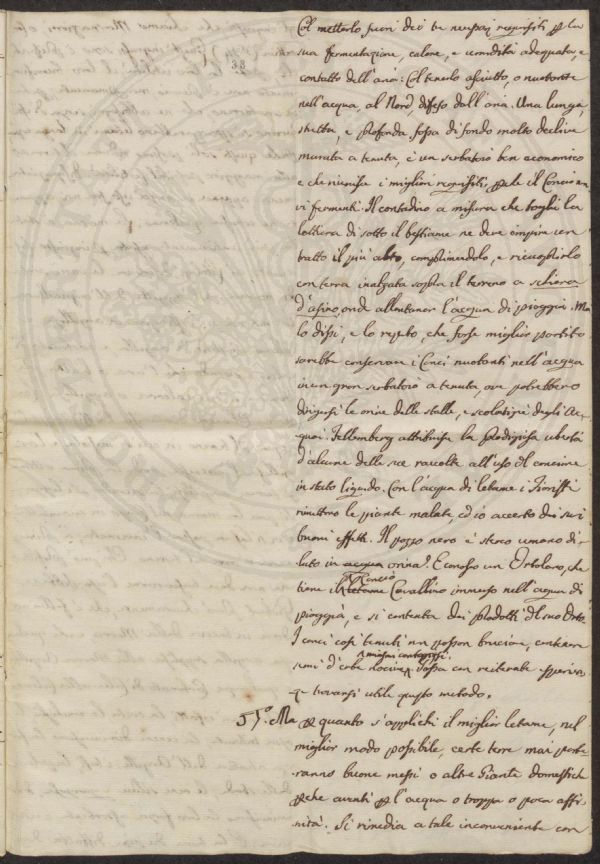 38
Col metterlo fuori dei tre neceſsarj requisiti p la
sua fermentazione, calore, e umidità adequata, e
contatto dell'aria: Col tenerlo asciutto, o nuotante
nell'acqua, al Nord, difeso dall'aria. Una lunga,
stretta, e profonda foſsa di fondo molto declive
murata a tenuta, è un serbatoio ben economico
e che riunisce i migliori requisiti, pchè il Concio
vi fermenti. Il contadino a misura che toglie la
lettiera di sotto il bestiame ne deve empire un
tratto il più alto, comprimendolo, e ricuoprirlo
con terra inalzata sopra il terreno a schiena
d'asino, onde allontanar l'acqua di pioggia. Ma
lo diſsi, e lo repeto, che forse miglior partito
sarebbe conservar i Conci nuotanti nell'acqua
in un gran serbatoio a tenuta, ove potrebbero
dirigersi le orine delle stalle, e scolaticci degli Ac-
quai. Fellemberg attribuisce la prodigiosa ubertà
d'alcune delle sue raccolte all'uso del concime
in stato liquido. Con l'acqua di letame i Fioristi
rimettono le piante malate, ed io accerto dei suoi
buoni effetti. Il pozzo nero è sterco umano di-
luto in acqua orina. E conosco un Ortolano, che
Concio
tiene il letame Cavallino immerso nell'acqua di
pioggia, e si contenta dei prodotti del suo Orto.
I conci così tenuti non poſson bruciare, contenere
miasmi contagiosi
semi d'erbe nocive, Poſsa con reiterate sperienze
trovarsi utile questo metodo.
51.º Ma p quanto s'applichi il miglior letame, nel
miglior modo poſsibile, certe terre mai porte-
ranno buone meſsi o altre Piante domestiche
pchè aventi p l'acqua o troppa o poca affi-
nità. Si rimedia a tale inconveniente con